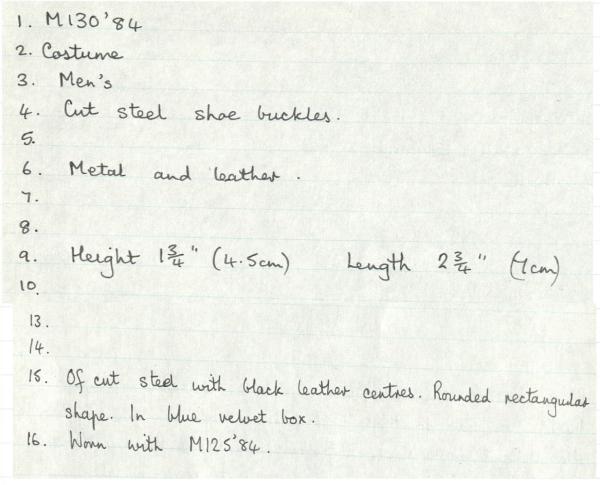 1. M130'84
2. Costume
3. Men's
4. Cut steel shoe buckles.
5.
6. Metal and leather.
7.
8.
9. Height 1¾" (4.5cm) Length 2¾" (7cm)
10.
13.
14.
15. Of cut steel with black leather centres. Rounded rectangular
shape. In blue velvet box.
16. Worn with M125'84.